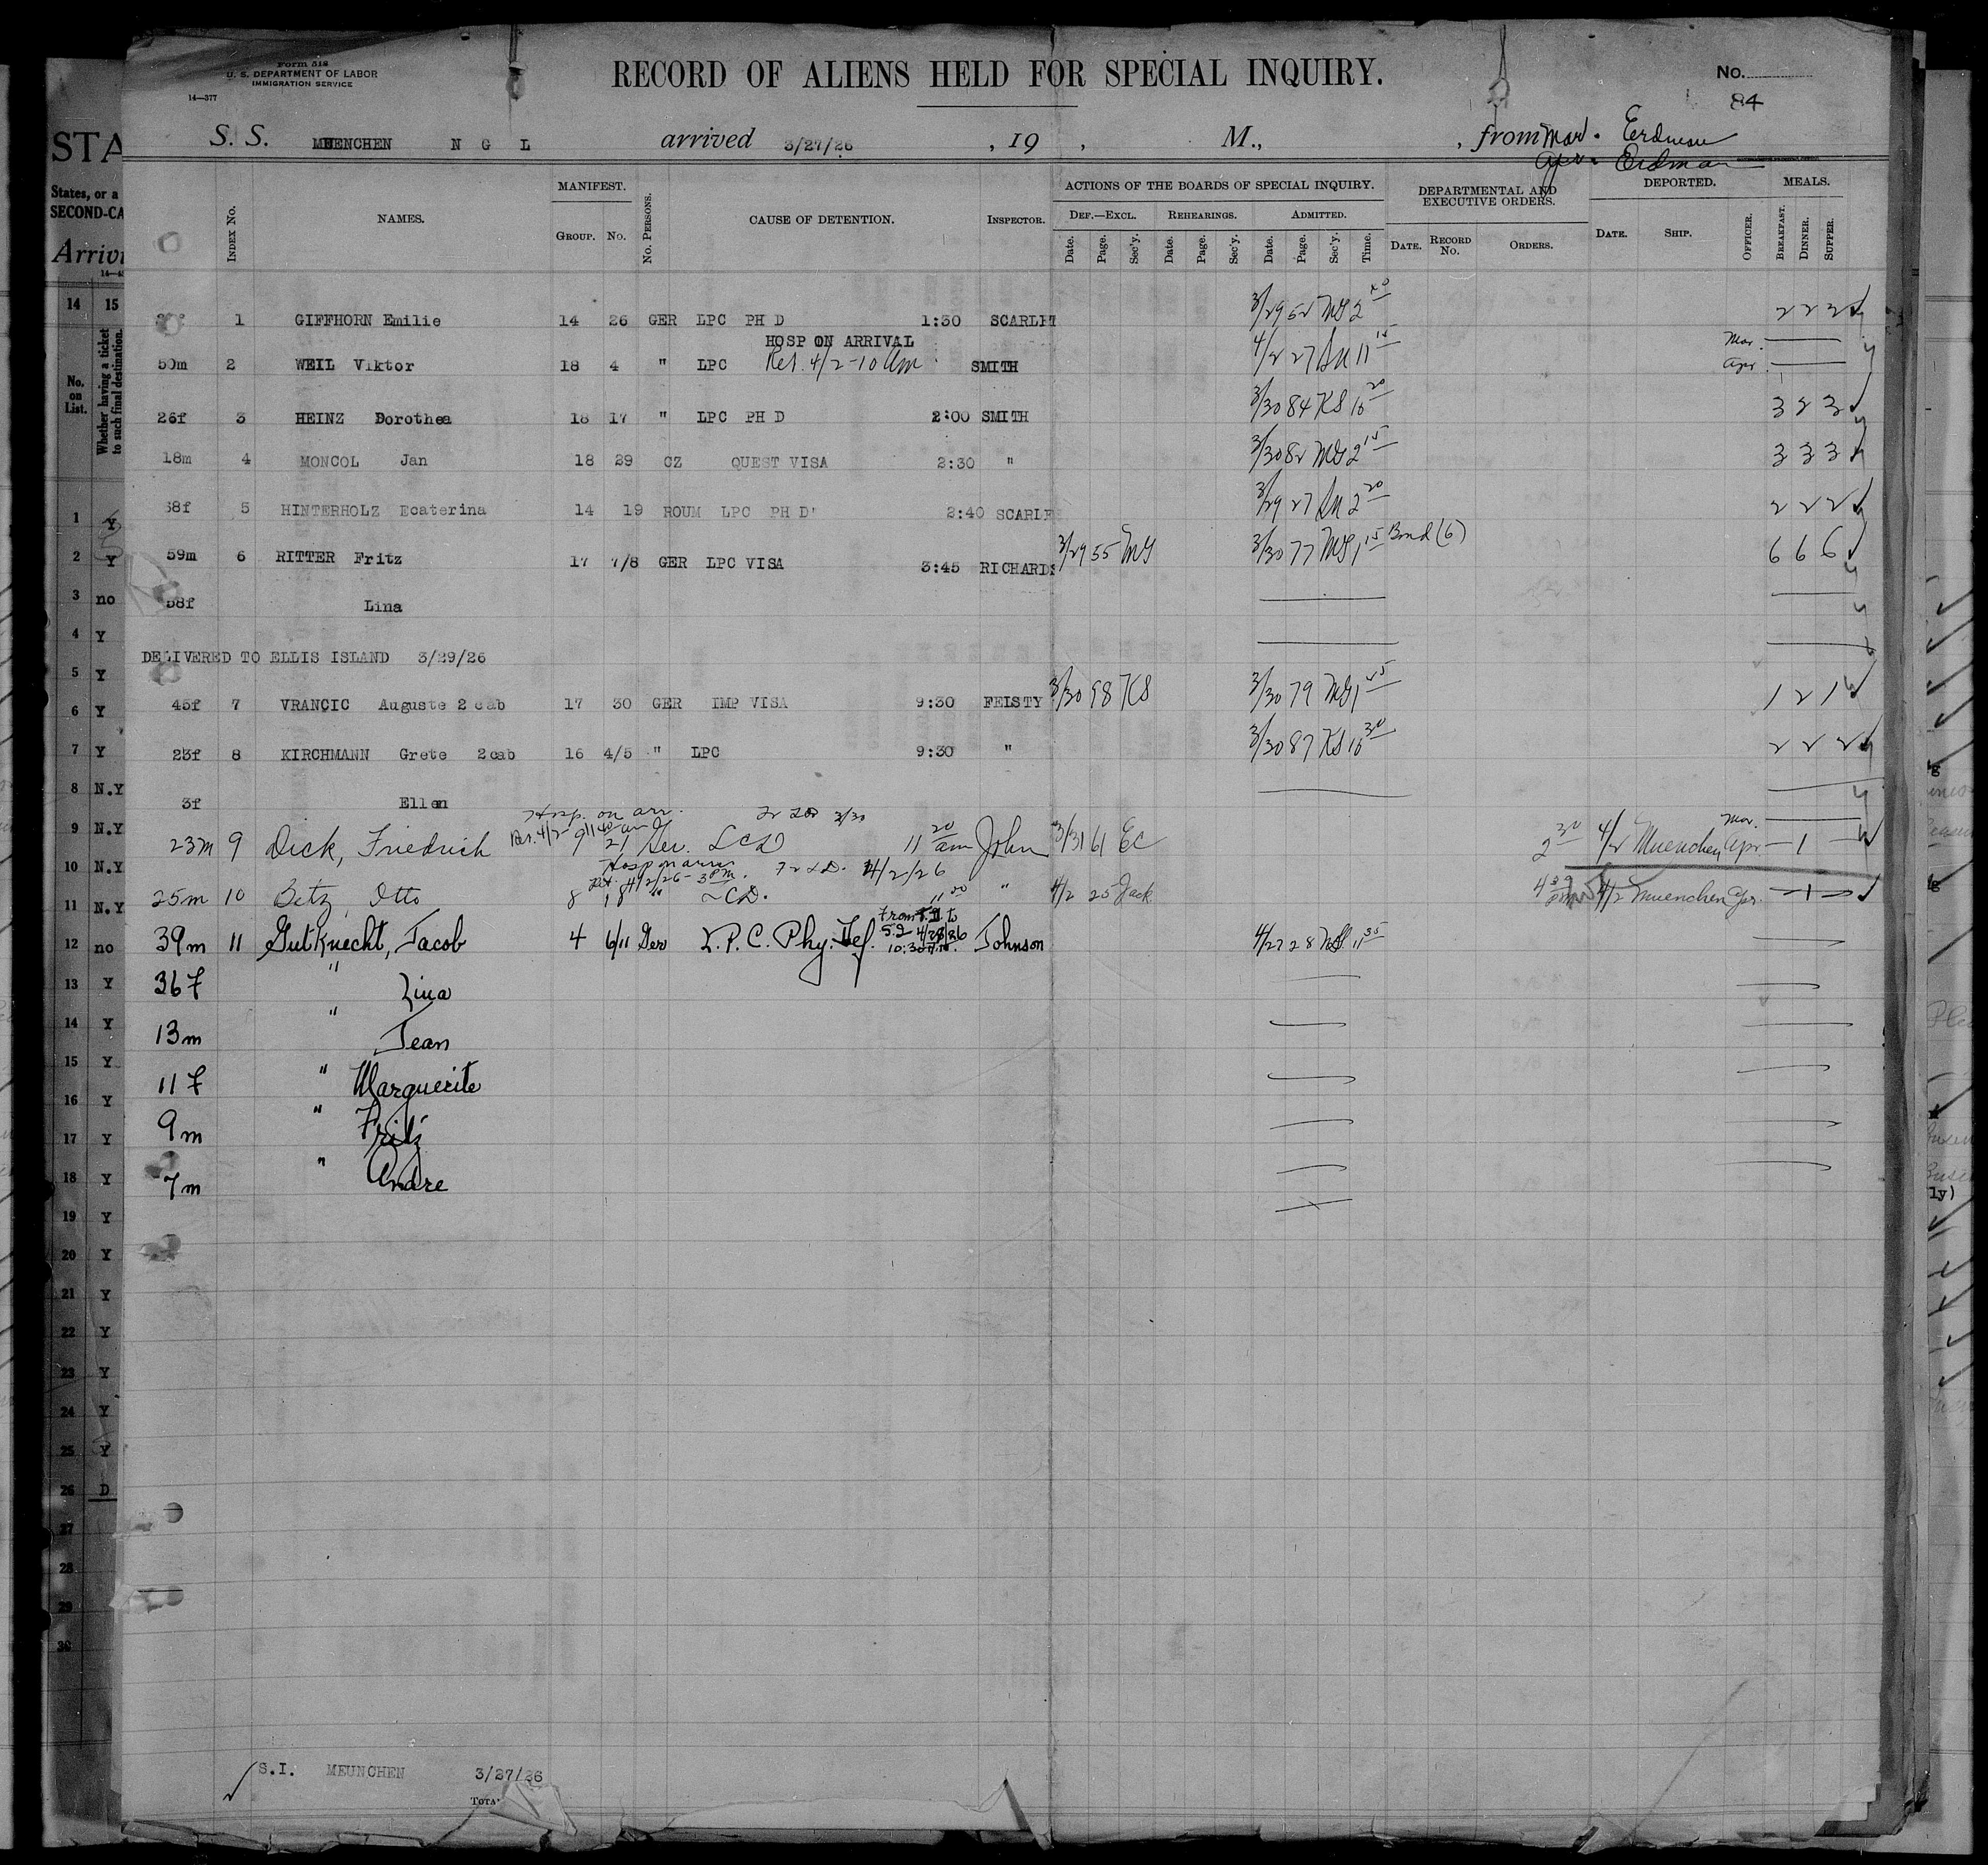 Form 518
U. S. DEPARTMENT OF LABOR
IMMIGRATION SERVICE
14—377
RECORD OF ALIENS HELD FOR SPECIAL INQUIRY.
No.
84
S. S. MUENCHEN N G L arrived 3/27/26 , 19 , M., , from Mar. Erdman
Apr. Erdman
INDEX No. NAMES. MANIFEST. GROUP. No. No. PERSONS. CAUSE OF DETENTION. INSPECTOR. ACTIONS OF THE BOARDS OF SPECIAL INQUIRY. DEPARTMENTAL AND EXECUTIVE ORDERS. DEPORTED. MEALS.
DEF.—EXCL. REHEARINGS. ADMITTED.
Date. Page. Sec'y. Date. Page. Sec'y. Date. Page. Sec'y. Time. DATE. RECORD No. ORDERS. DATE. SHIP. OFFICER. BREAKFAST. DINNER. SUPPER.
1 GIFFHORN Emilie 14 26 GER LPC PH D 1:30 SCARLET 3/29 52 MG 2 2 2 3
HOSP ON ARRIVAL
50m 2 WEIL Viktor 18 4 " LPC Rel. 4/2-10 am SMITH 4/2 27 11 15 Mar. Apr.
26f 3 HEINZ Dorothea 18 17 " LPC PH D 2:00 SMITH 3/30 84 KS 10 20 3 2 3
18m 4 MONCOL Jan 18 29 CZ QUEST VISA 2:30 " 3/30 82 MG 2 15 3 3 3
38f 5 HINTERHOLZ Ecaterina 14 19 ROUM LPC PH D 2:40 SCARLE 3/29 27 2 20 2 2 2
59m 6 RITTER Fritz 17 7/8 GER LPC VISA 3:45 RICHARDS 3/29 55 MG 3/30 77 MG 1 15 Bond (6) 6 6 6
58f Lina
DELIVERED TO ELLIS ISLAND 3/29/26
45f 7 VRANCIC Auguste 2 cab 17 30 GER IMP VISA 9:30 FEISTY 3/30 98 KS 3/30 79 MG 1 45 1 2 1
23f 8 KIRCHMANN Grete 2cab 16 4/5 " LPC 9:30 " 3/30 87 KS 10 30 2 2 2
3f Ellen
Hosp. on arr. 3/30
23m 9 Dick, Friedrich 9 21 Ger. LCD 11 20 am John 3/31 61 EC 2 30 4/2 Muenchen Mar. Apr. — 1 —
Hosp on arr. 4/2/26
Rel. 4/2/26 - 3 PM.
25m 10 Betz, Otto 8 18 " LCD. 11 20 " 4/2 25 Jack 4/2 Muenchen Apr. — 1 —
39m 11 Gutknecht, Jacob 4 6/11 Ger L. P. C. Phy. Def. From T.D. to S.I. 4/26/26 10:30 A.M. Johnson 4/27 28 11 35
36f " Lina
13m " Jean
11f " Marguerite
9m " Fritz
7m " Andre
S.I. MEUNCHEN 3/27/26
TOTAL
STA
States, or a
SECOND-CA
Arrivi
14 15
No. on List.
Whether having a ticket to such final destination.
1 Y
2 Y
3 no
4 Y
5 Y
6 Y
7 Y
8 N.Y
9 N.Y
10 N.Y
11 N.Y
12 no
13 Y
14 Y
15 Y
16 Y
17 Y
18 Y
19 Y
20 Y
21 Y
22 Y
23 Y
24 Y
25 Y
26 D
27
28
29
30
ly)